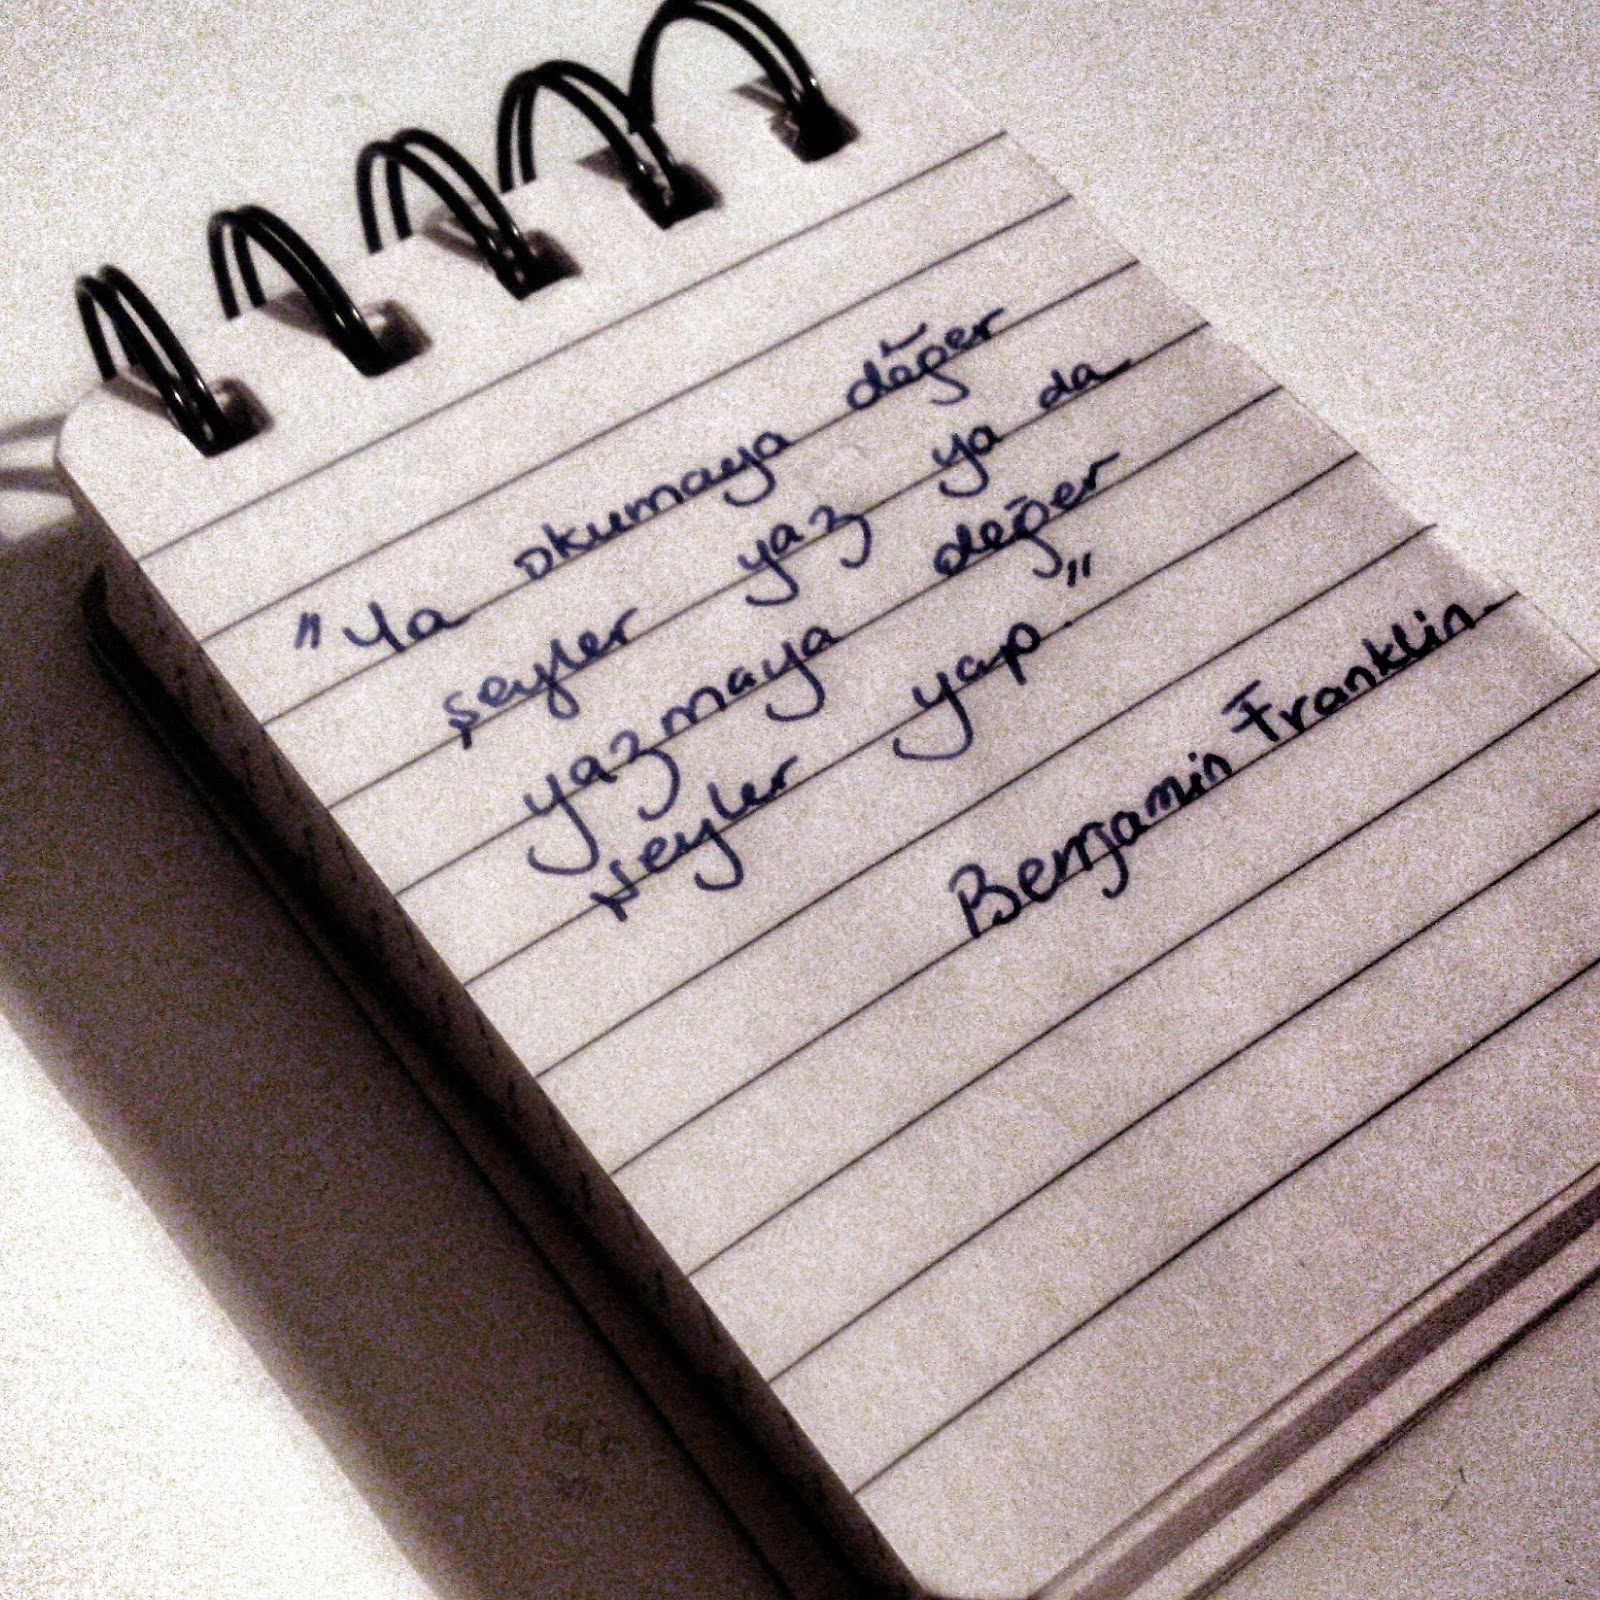 "Ya okumaya değer
şeyler yaz ya da
yazmaya değer
şeyler yap."
Benjamin Franklin